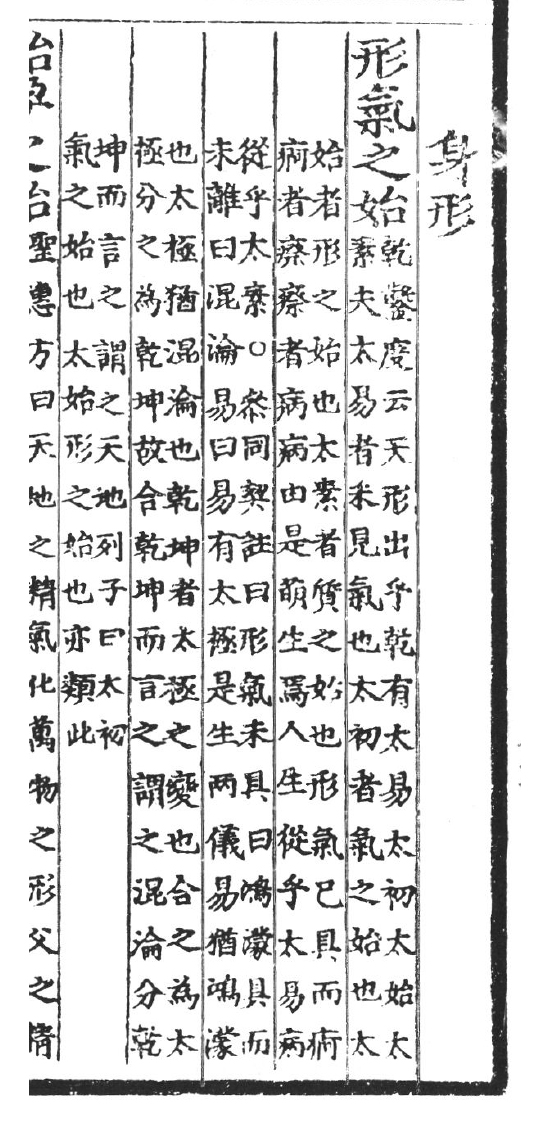 身形
形氣之始乾鑿度云天形出乎乾有太易太初太始太
素夫太易者未見氣也太初者氣之始也太
始者形之始也太素者質之始也形氣已具而痾
痾者瘵瘵者病病由是萌生焉人生從乎太易病
從乎太素○叅同契註曰形氣未具曰鴻濛具而
未離曰混淪易曰易有太極是生两儀易猶鴻濛
也太極猶混淪也乾坤者太極之變也合之為太
極分之為乾坤故合乾坤而言之謂之混淪分乾
坤而言之謂之天地列子曰太初
氣之始也太始形之始也亦類此
胎孕之始聖惠方曰天地之精氣化萬物之形父之精